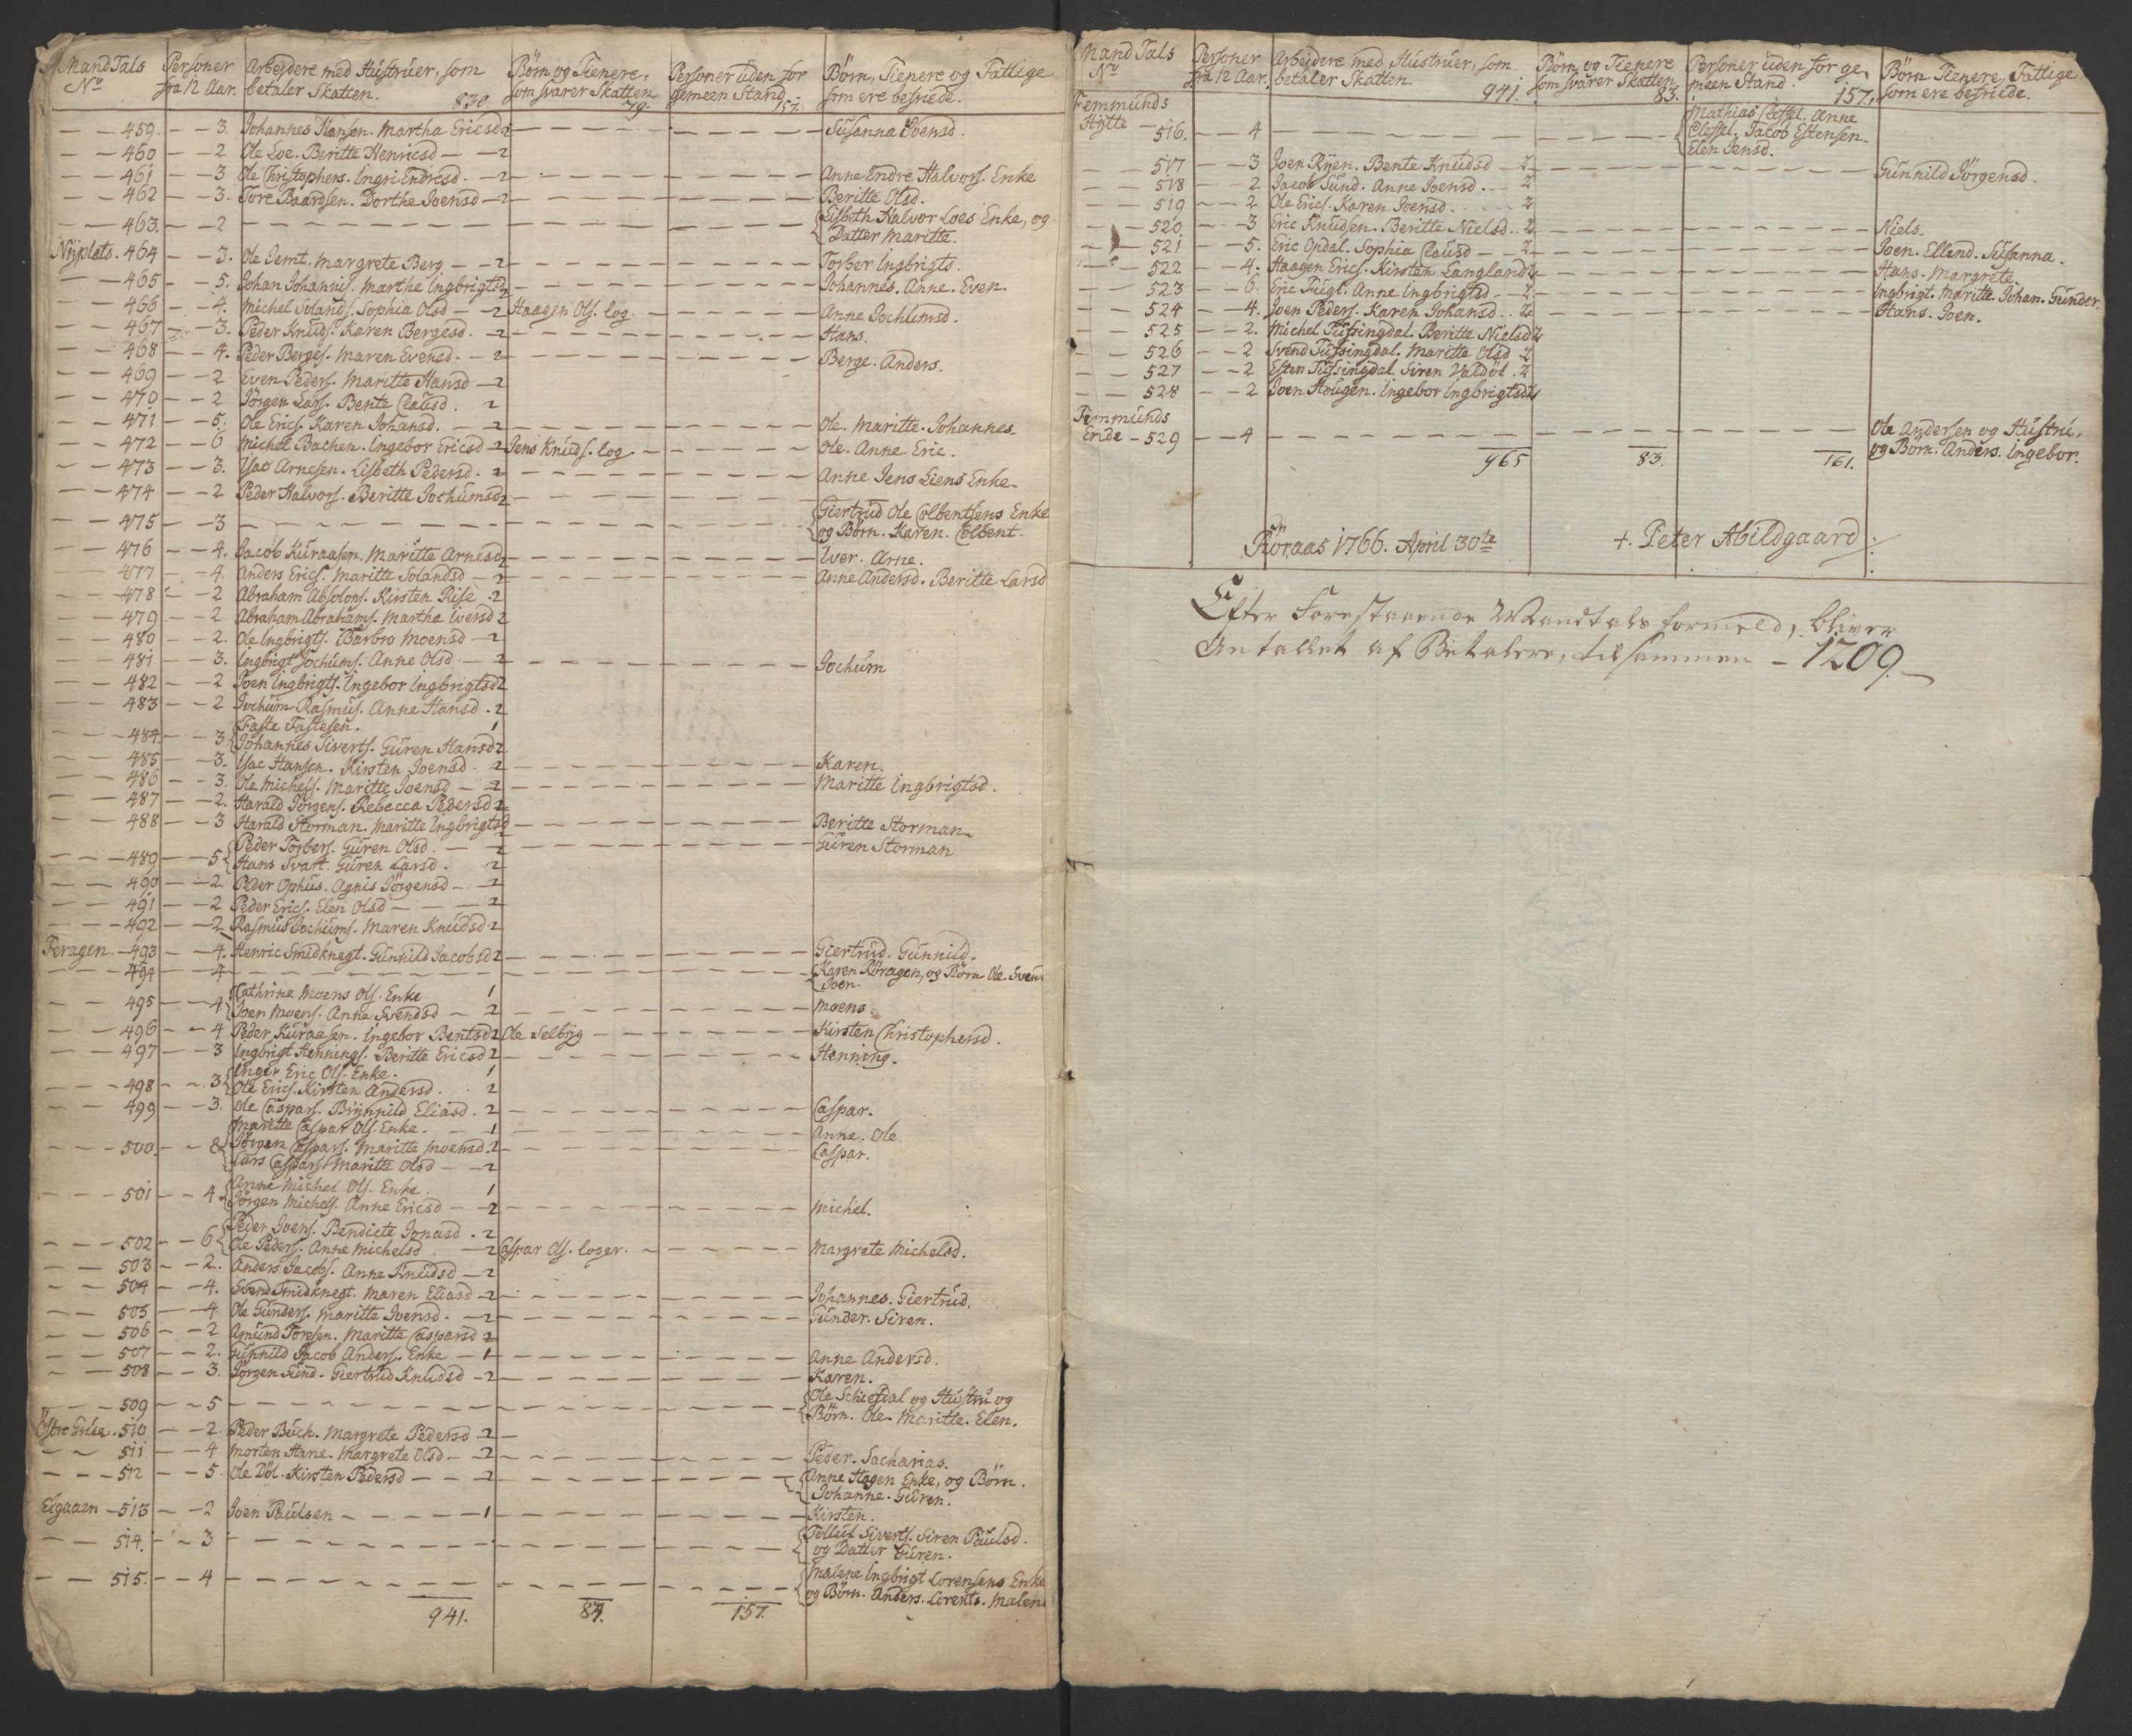 MandTals No Personer fra 12 Aar. Arbejdere med Hustruer, som betaler Skatten. 870. Börn og Tienere, som svarer Skatten 79. Personer uden for gemeen Stand 157. Börn, Tienere og Fattige som ere befriede.
459. 3. Johannes Hansen. Martha Ericsd 2 Susanna Joensd.
460 2 Ole Loe. Beritte Henricsd 2
461 3 Ole Christophers. Ingri Endresd. 2 Anne Endre Halvors. Enke
462 3. Tore Baardsen. Dorthe Joensd 2 Beritte Olsd.
463. 2 Lisbeth Halvor Loes Enke, og
Datter Maritte.
Nyplats. 464 3. Ole Jemt. Margrete Berg 2 Torber Ingbrigts.
465 5. Johan Johannis. Marthe Ingbrigtsd 2 Johannes. Anne. Even.
466 4. Michel Solands. Sophia Olsd 2 Haagen Ols. log. Anne Jochumsd.
467 3. Peder Knuds. Karen Bergesd. 2 Hans.
468 4. Peder Berges. Maren Evensd. 2 Berge. Anders.
469 2 Even Peders. Maritte Hansd 2
470 2 Jörgen Lars. Bente Clausd. 2
471 5. Ole Erics. Karen Johansd. 2 Ole. Maritte. Johannes.
472 6 Michel Bachen. Ingebor Ericsd 2 Jens Knuds. log Ole. Anne. Eric.
473 3. Isac Arnesen. Lisbeth Pedersd. 2 Anne Jens Liens Enke.
474 2 Peder Halvors. Beritte Jochumsd 2
475 3 Giertrud Ole Colbentsens Enke
og Börn. Karen. Colbent.
476 4. Jacob Kuraasen. Maritte Arnesd 2 Iver. Arne.
477 4. Anders Erics. Maritte Solandsd 2 Anne Andersd. Beritte Larsd
478 2 Abraham Absolons. Kirsten Rise 2
479 2 Abraham Abrahams. Martha Iversd 2
480 2. Ole Ingbrigts. Barbro Moensd 2
481 3. Ingbrigt Jochums. Anne Olsd 2 Jochum
482 2 Joen Ingbrigts. Ingebor Ingbrigtsd 2
483 2 Jochum Rasmus. Anne Hansd. 2
484. 3. Faste Fastesen. 1
Johannes Siverts. Guren Hansd 2
485 3. Isac Hansen. Kirsten Joensd. 2 Karen.
486 3. Ole Michels. Maritte Joensd 2 Maritte Ingbrigtsd.
487 2. Harald Jörgens. Rebecca Pedersd 2
488 3 Harald Storman. Maritte Ingbrigtsd 2 Beritte Storman
489 5 Peder Torbers. Guren Olsd. 2 Guren Storman
Hans Svart. Guren Larsd. 2
490 2. Peder Ophus. Agnis Jörgensd 2
491 2 Peder Erics. Elen Olsd 2
492 2 Rasmus Jochums. Maren Knudsd 2
Feragen. 493 4. Henric Smidknegt. Gunnild Jacobsd 2 Giertrud. Gunnild.
494 4 Karen Röragen, og Börn Ole. Svend
Joen.
495 4 Cathrine Moens Ols. Enke 1
Joen Moens. Anne Svendsd 2 Moens.
496 4 Peder Kuraasen. Ingebor Bentsd 2 Ole Selbyg Kirsten Christophersd.
497 3 Ingbrigt Hennings. Beritte Ericsd 2 Henning.
498 3 Inger Eric Ols. Enke. 1
Ole Erics. Kirsten Andersd. 2
499 3. Ole Caspars. Brynnild Eliasd. 2 Caspar.
500 8 Maritte Caspar Ols. Enke. 1 Anne. Ole.
Jörgen Caspars. Maritte Moensd. 2 Caspar.
Lars Caspars. Maritte Olsd 2
501 4 Anne Michel Ols. Enke. 1
Jörgen Michels. Anne Ericsd 2 Michel.
502 6 Peder Joens. Bendicte Jonasd. 2
Ole Peders. Anne Michelsd. 2 Caspar Ols. loger. Margrete Michelsd.
503 2. Anders Jacobs. Anne Knudsd 2
504 4. Svend Smidknegt. Maren Eliasd 2 Johannes. Giertrud.
505 4. Ole Gunders. Maritte Joensd. 2 Gunder. Siren.
506 2 Amund Toresen. Maritte Casparsd 2
507 2. Gunnild Jacob Anders. Enke 1 Anne Andersd.
508 3. Jörgen Sund. Giertrud Knudsd 2 Karen.
509 5 Ole Schiesdal og Hustru og
Börn. Ole. Maritte. Elen.
Östre Grue. 510 2. Peder Buch. Margrete Pedersd 2
511 4 Morten Hane. Margrete Olsd 2 Peder. Sacharias.
512 5. Ole Döl. Kirsten Pedersd 2 Anne Hagen Enke, og Börn.
Johanne. Guren.
Elgaaen 513 2 Joen Paulsen 1 Kirsten.
514. 3 Tolluf Siverts. Siren Paulsd.
og Datter Guren.
515. 4 Malene Ingbrigt Lorensens Enke
og Börn. Anders. Lorents. Malene
941. 83. 157.
MandTals No Personer fra 12 Aar. Arbejdere med Hustruer, som betaler Skatten. 941. Börn og Tienere som svarer Skatten 83. Personer uden for gemeen Stand. 157. Börn, Tienere, Fattige som ere befriede.
Femmunds
Hytte 516. 4 Mathias Clessel. Anne
Clessel. Jacob Estensen.
Elen Jensd.
517 3 Joen Ryen. Bente Knudsd 2 Gunnild Jörgensd.
518 2 Jacob Sund. Anne Joensd. 2
519 2 Ole Erics. Karen Joensd. 2
520. 3 Eric Knudsen. Beritte Nielsd. 2 Niels.
521 5. Eric Opdal. Sophia Clausd 2 Joen. Ellend. Susanna.
522 4. Haagen Erics. Kirsten Langland 2 Hans. Margrete.
523 6 Eric Trugt. Anne Ingbrigtsd 2 Ingbrigt. Maritte. Johan. Gunder.
524 4. Joen Peders. Karen Johansd. 2 Hans. Joen.
525 2. Michel Tufsingdal. Beritte Nielsd 2
526 2 Svend Tufsingdal. Maritte Olsd 2
527 2 Esten Tufsingdal. Siren Valdöl. 2
528 2 Joen Hougen. Ingebor Ingbrigtsd 2
Femmunds
Ende 529 4 Ole Andersen og Hustru,
og Börn. Anders. Ingebor.
965 83. 161.
Röraas 1766. April 30te
+. Peter Abildgaard
Efter Forestaaende Mandtals formeld, bliver
Antallet af Betalere, tilsammen - 1209.